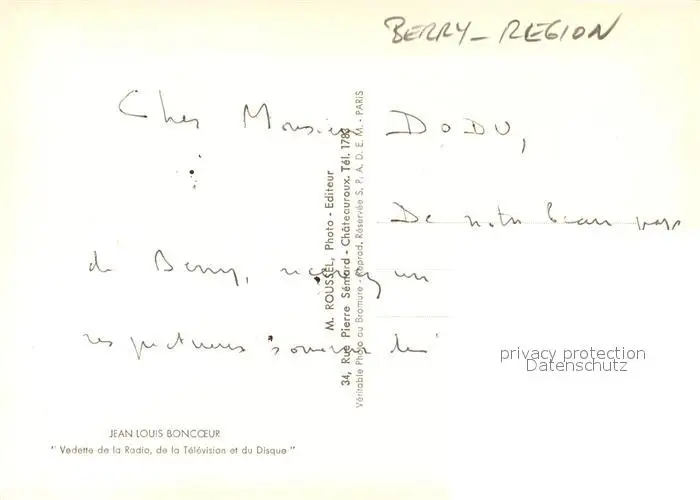 BERRY - REGION
Cher Monsieur DODU,
De notre beau pays
de Berry, recevez un
respectueux souvenir
M. ROUSSEL, Photo - Editeur
34, Rue Pierre Sémard - Châteauroux. Tél. 1783
Véritable Photo au Bromure - Reprod. Réservée S. P. A. D. E. M. - PARIS
privacy protection
Datenschutz
JEAN-LOUIS BONCŒUR
" Vedette de la Radio, de la Télévision et du Disque "